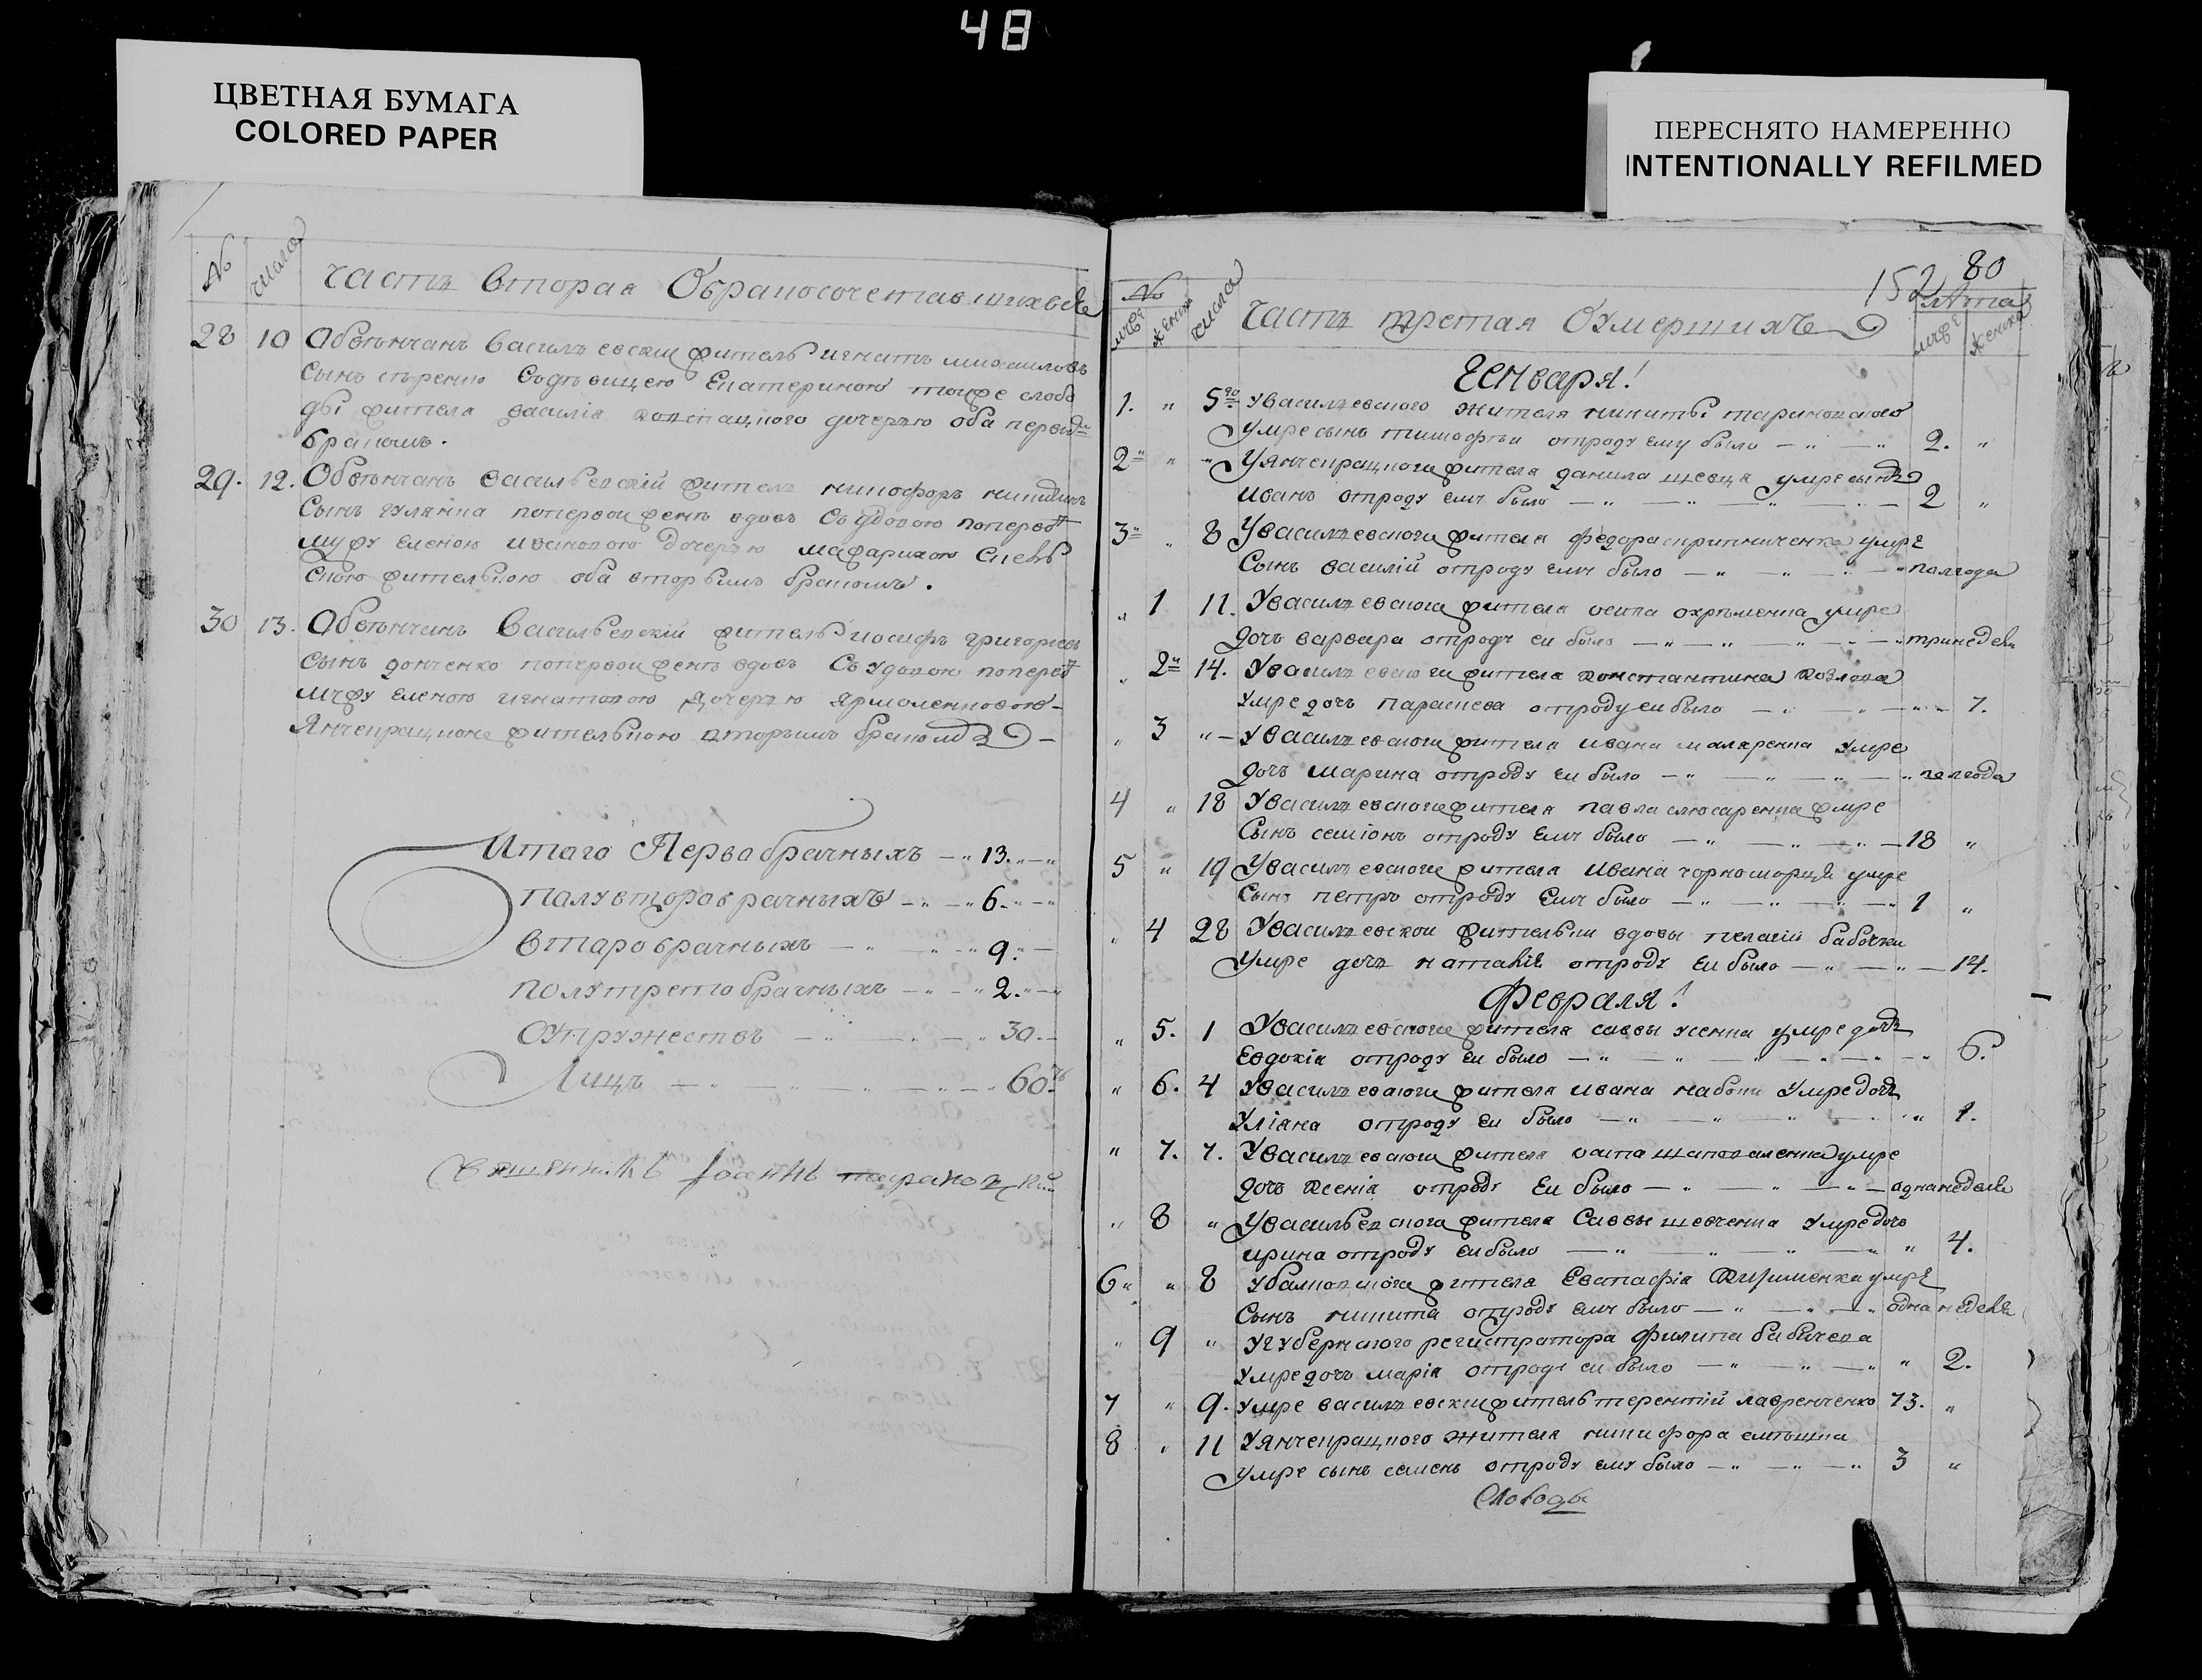 48
ЦВЕТНАЯ БУМАГА
COLORED PAPER
ПЕРЕСНЯТО НАМЕРЕННО
INTENTIONALLY REFILMED
№ числа часть вторая О бракосочетавшихся
28 10 Обвѣнчанъ василъевски житель игнатъ михаиловъ
сынъ съ дѣвицею Екатериною тоиже слобо
ды жителя василія дочерью оба первы
бракомъ.
29. 12. Обвѣнчанъ васильевскій житель никифоръ
сынъ гулянка попервои женѣ вдовъ съ удовою поперво
мужу еленою ивановою дочерью
жительною оба вторымъ бракомъ.
30 13. Обвѣнчанъ Васильевскій житель иосифъ григориевъ
сынъ донченко попервои женѣ вдовъ съ удовою поперво
мужу еленою игнатовою дочерью ярмоленковою
Янчепрацкою жительною вторымъ бракомъ
Итаго Первабрачныхъ 13.
полувторобрачныхъ 6.
втаробрачныхъ 9.
полутретобрачныхъ 2.
Супружествъ 30.
Лицъ 60.
Священникъ Іоаннъ
152 80
№ числа часть третая О умершихъ лѣта
муже женска муже женска
Генваря!
1. " 5го Увасилъевского жителя никиты тарановского
умре сынъ тимофѣи отроду ему было 2. "
2 " " Уянчепрацкого жителя данила шевця умре сынъ
иванъ отроду ему было 2 "
3 " 8 Увасилъевского жителя федора скрипниченка умре
Сынъ василій отроду ему было полгода
" 1 11. Увасилъевского жителя осипа охрѣменка умре
дочъ варвара отроду еи было три недели
" 2 14. Увасилъевского жителя константина козлова
умре дочъ параскева отроду еи было 7.
" 3 " Увасилъевского жителя ивана маляренка умре
дочъ марина отроду еи было полгода
4 " 18 Увасилъевского жителя павла слюсаренка умре
Сынъ семіонъ отроду ему было 18 "
5 " 19 Увасилъевского жителя ивана чорноморця умре
Сынъ петръ отроду ему было 1 "
" 4 28 Увасилъевскои жителки вдовы пелагіи бабочки
умре дочъ наталіе отроду еи было 14.
Февраля!
" 5. 1 Увасилъевского жителя саввы усенка умре дочъ
Евдокія отроду еи было 6.
" 6. 4 Увасилъевского жителя ивана набоки умре дочъ
Уліяна отроду еи было 1.
" 7. 7. Увасилъевского жителя осипа шаповаленка умре
дочъ ксенія отроду еи было одна неделя
" 8 " Увасильевского жителя Саввы шевченка умре дочъ
ирина отроду еи было " 4.
6 " 8 Убалковского жителя Евстафія Кизименка умре
Сынъ никита отроду ему было одна неделя
" 9 " Угубернского регистратора филипа бабичева
умре дочъ марія отроду еи было " 2.
7 " 9. умре василъевски житель терентій лавренченко 73. "
8 " 11 Уянчепрацкого жителя никифора
умре сынъ семенъ отроду ему было 3 "
Слободы